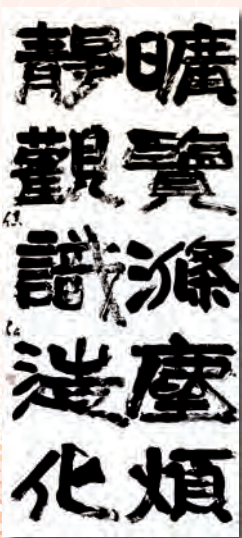 曠覽滌塵煩
靜觀識造化